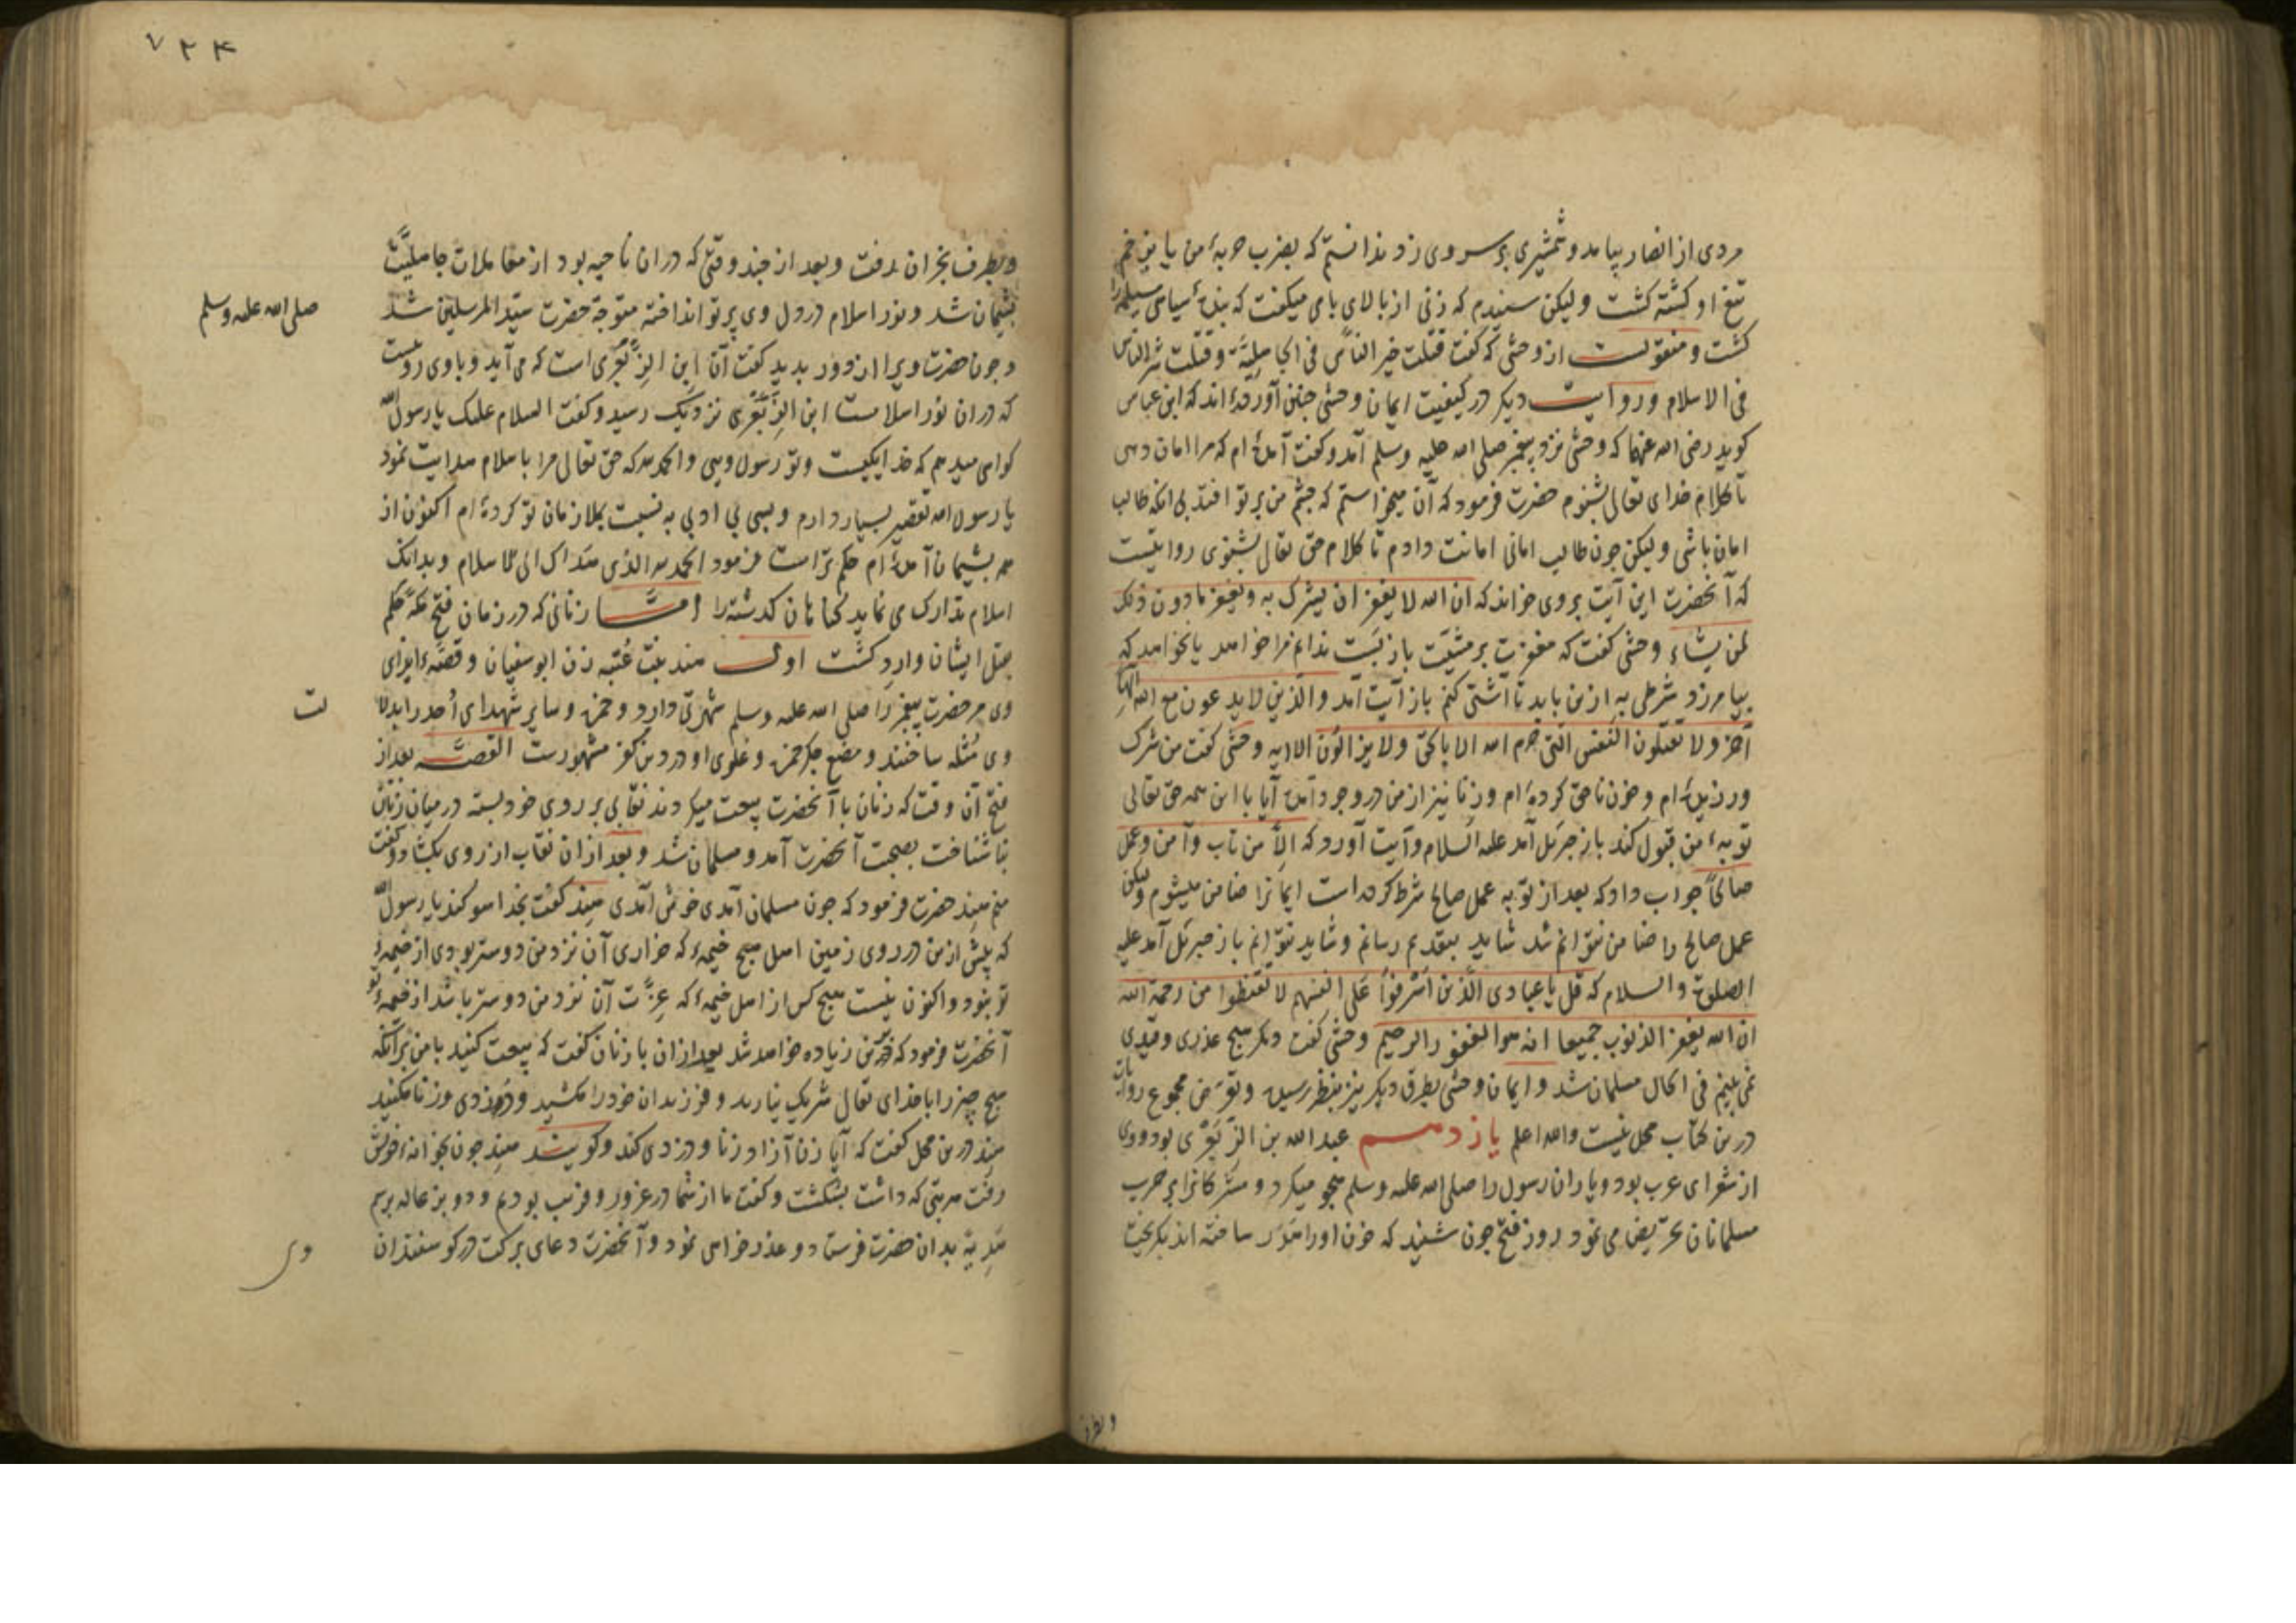 مردی از انصار بیامد و شمشیری بر سر وی زد ندانستم که بضرب حربهٔ من یا بزخم
تیغ او کشته کشت ولیکن شنیدم که زنی از بالای بامی میکفت که بندهٔ سیاهی مسیلمه را
کشت و منقولست از وحشی که کفت قتلت خیر الناس فی الجاهلیّة و قتلت شر الناس
فی الاسلام و روایت دیکر در کیفیت ایمان وحشی چنین آورده‌اند که ابن عباس
کوید رضی الله عنهما که وحشی نزد پیغمبر صلی الله علیه وسلم آمد و کفت آمده‌ام که مرا امان دهی
تا کلام خدای تعالی بشنوم حضرت فرمود که آن میخواستم که چشم من بر تو افتد بی انکه طالب
امان باشی ولیکن چون طالب امانی امانت دادم تا کلام حق تعالی بشنوی روایتست
که آنحضرت این آیت بر وی خواند که ان الله لا یغفر ان یشرک به و یغفر ما دون ذلک
لمن یشاء وحشی کفت که مغفرت بر مشیّت باز بست ندانم مرا خواهد یا نخواهد که
بیامرزد شرطی به ازین باید تا آشتی کنم باز آیت آمد والذین لا یدعون مع الله الها
آخر ولا یقتلون النفس التی حرم الله الا بالحق ولا یزنون الایه وحشی کفت من شرک
ورزیده‌ام و خون ناحق کرده‌ام و زنا نیز از من در وجود آمده آیا با این همه حق تعالی
توبهٔ من قبول کند باز جبرئل آمد علیه السلام و آیت آورد که الّا من تاب وآمن وعمل
صالحاً جواب داد که بعد از توبه عمل صالح شرط کرده است ایمانرا ضامن میشوم ولیکن
عمل صالح را ضامن نتوانم شد شاید بتقدیم رسانم و شاید نتوانم باز جبرئل آمد علیه
الصلوة والسلام که قل یا عبادی الّذین اسْرفوا عَلی انفسهم لا تقنطوا من رحمة الله
ان الله یغفر الذنوب جمیعا انه هو الغفور الرحیم وحشی کفت دیکر هیچ عذری و قیدی
نمی بینم فی الحال مسلمان شد و ایمان وحشی بطرق دیکر نیز بنظر رسیده و تعرّض مجموع روایات
درین کتاب محل نیست والله اعلم یازدهم عبد الله بن الزّبَعْری بود و وی
از شعرای عرب بود و یاران رسول را صلی الله علیه وسلم هجو میکرد و مشرکانرا بر حرب
مسلمانان تحریض می نمود روز فتح چون شنید که خون او را هدر ساخته اند بکریخت
و بطرف
۷۲۴
و بطرف نجران رفت و بعد از چند وقتی که در ان ناحیه بود از معاملات جاهلیّت
پشیمان شد و نور اسلام در دل وی پرتو انداخته متوجّه حضرت سیّد المرسلین شد
صلی الله علیه وسلم
و چون حضرت ویرا از دور بدید کفت آن ابن الزّبَعْری است که می آید و با وی روییست
که در ان نور اسلامست ابن الزّبَعْری نزدیک رسید و کفت السلام علیک یا رسول الله
کواهی میدهم که خدا یکیست و تو رسول ویی والحمد لله که حق تعالی مرا باسلام هدایت نمود
یا رسول الله تقصیر بسیار دارم و بسی بی ادبی به نسبت بملازمان تو کرده‌ام اکنون از
همه پشیمان آمده‌ام حکم تراست فرمود الحمد لله الذی هداک الی الاسلام و بدانک
اسلام تدارک می نماید کناهان کذشته را امّا زنانی که در زمان فتح مکه حکم
بقتل ایشان وارد کشت اول هند بنت عُتبه زن ابوسفیان و قصّهٔ ایذای
وی مر حضرت پیغمبر را صلی الله علیه وسلم شهرتی دارد و حمزه و سایر شهدای اُحد را بدلالت
وی مُثله ساختند و مضغ جکر حمزه و غلوی او در دین کفر مشهورست القصّه بعد از
فتح آن وقت که زنان با آنحضرت بیعت میکردند نقابی بر روی خود بسته در میان زنان
ناشناخت بصحبت آنحضرت آمد و مسلمان شد و بعد ازان نقاب از روی بکشاد و کفت
منم هند حضرت فرمود که چون مسلمان آمدی خوش آمدی هند کفت بخدا سوکند یا رسول الله
که پیش ازین در روی زمین اهل هیچ خیمهٔ که خواری آن نزد من دوستر بودی از خیمهٔ
تو نبود و اکنون نیست هیچ کس از اهل خیمهٔ که عزّت آن نزد من دوستر باشد از خیمهٔ تو
آنحضرت فرمود که زیاده خواهد شد بعد ازان با زنان کفت که بیعت کنید با من بر آنکه
هیچ چیز را با خدای تعالی شریک نیارید و فرزندان خود را مکشید و دزدی و زنا مکنید
هند درین محل کفت که آیا زن آزاد زنا و دزدی کند و کویند هند چون بخانهٔ خویش
رفت هر بتی که داشت بشکشت و کفت ما از شما در غرور و فریب بودیم و دو بزغاله برسم
هَدِیّه بدان حضرت فرستاد و عذر خواهی نمود و آنحضرت دعای برکت در کوسفندان
وی